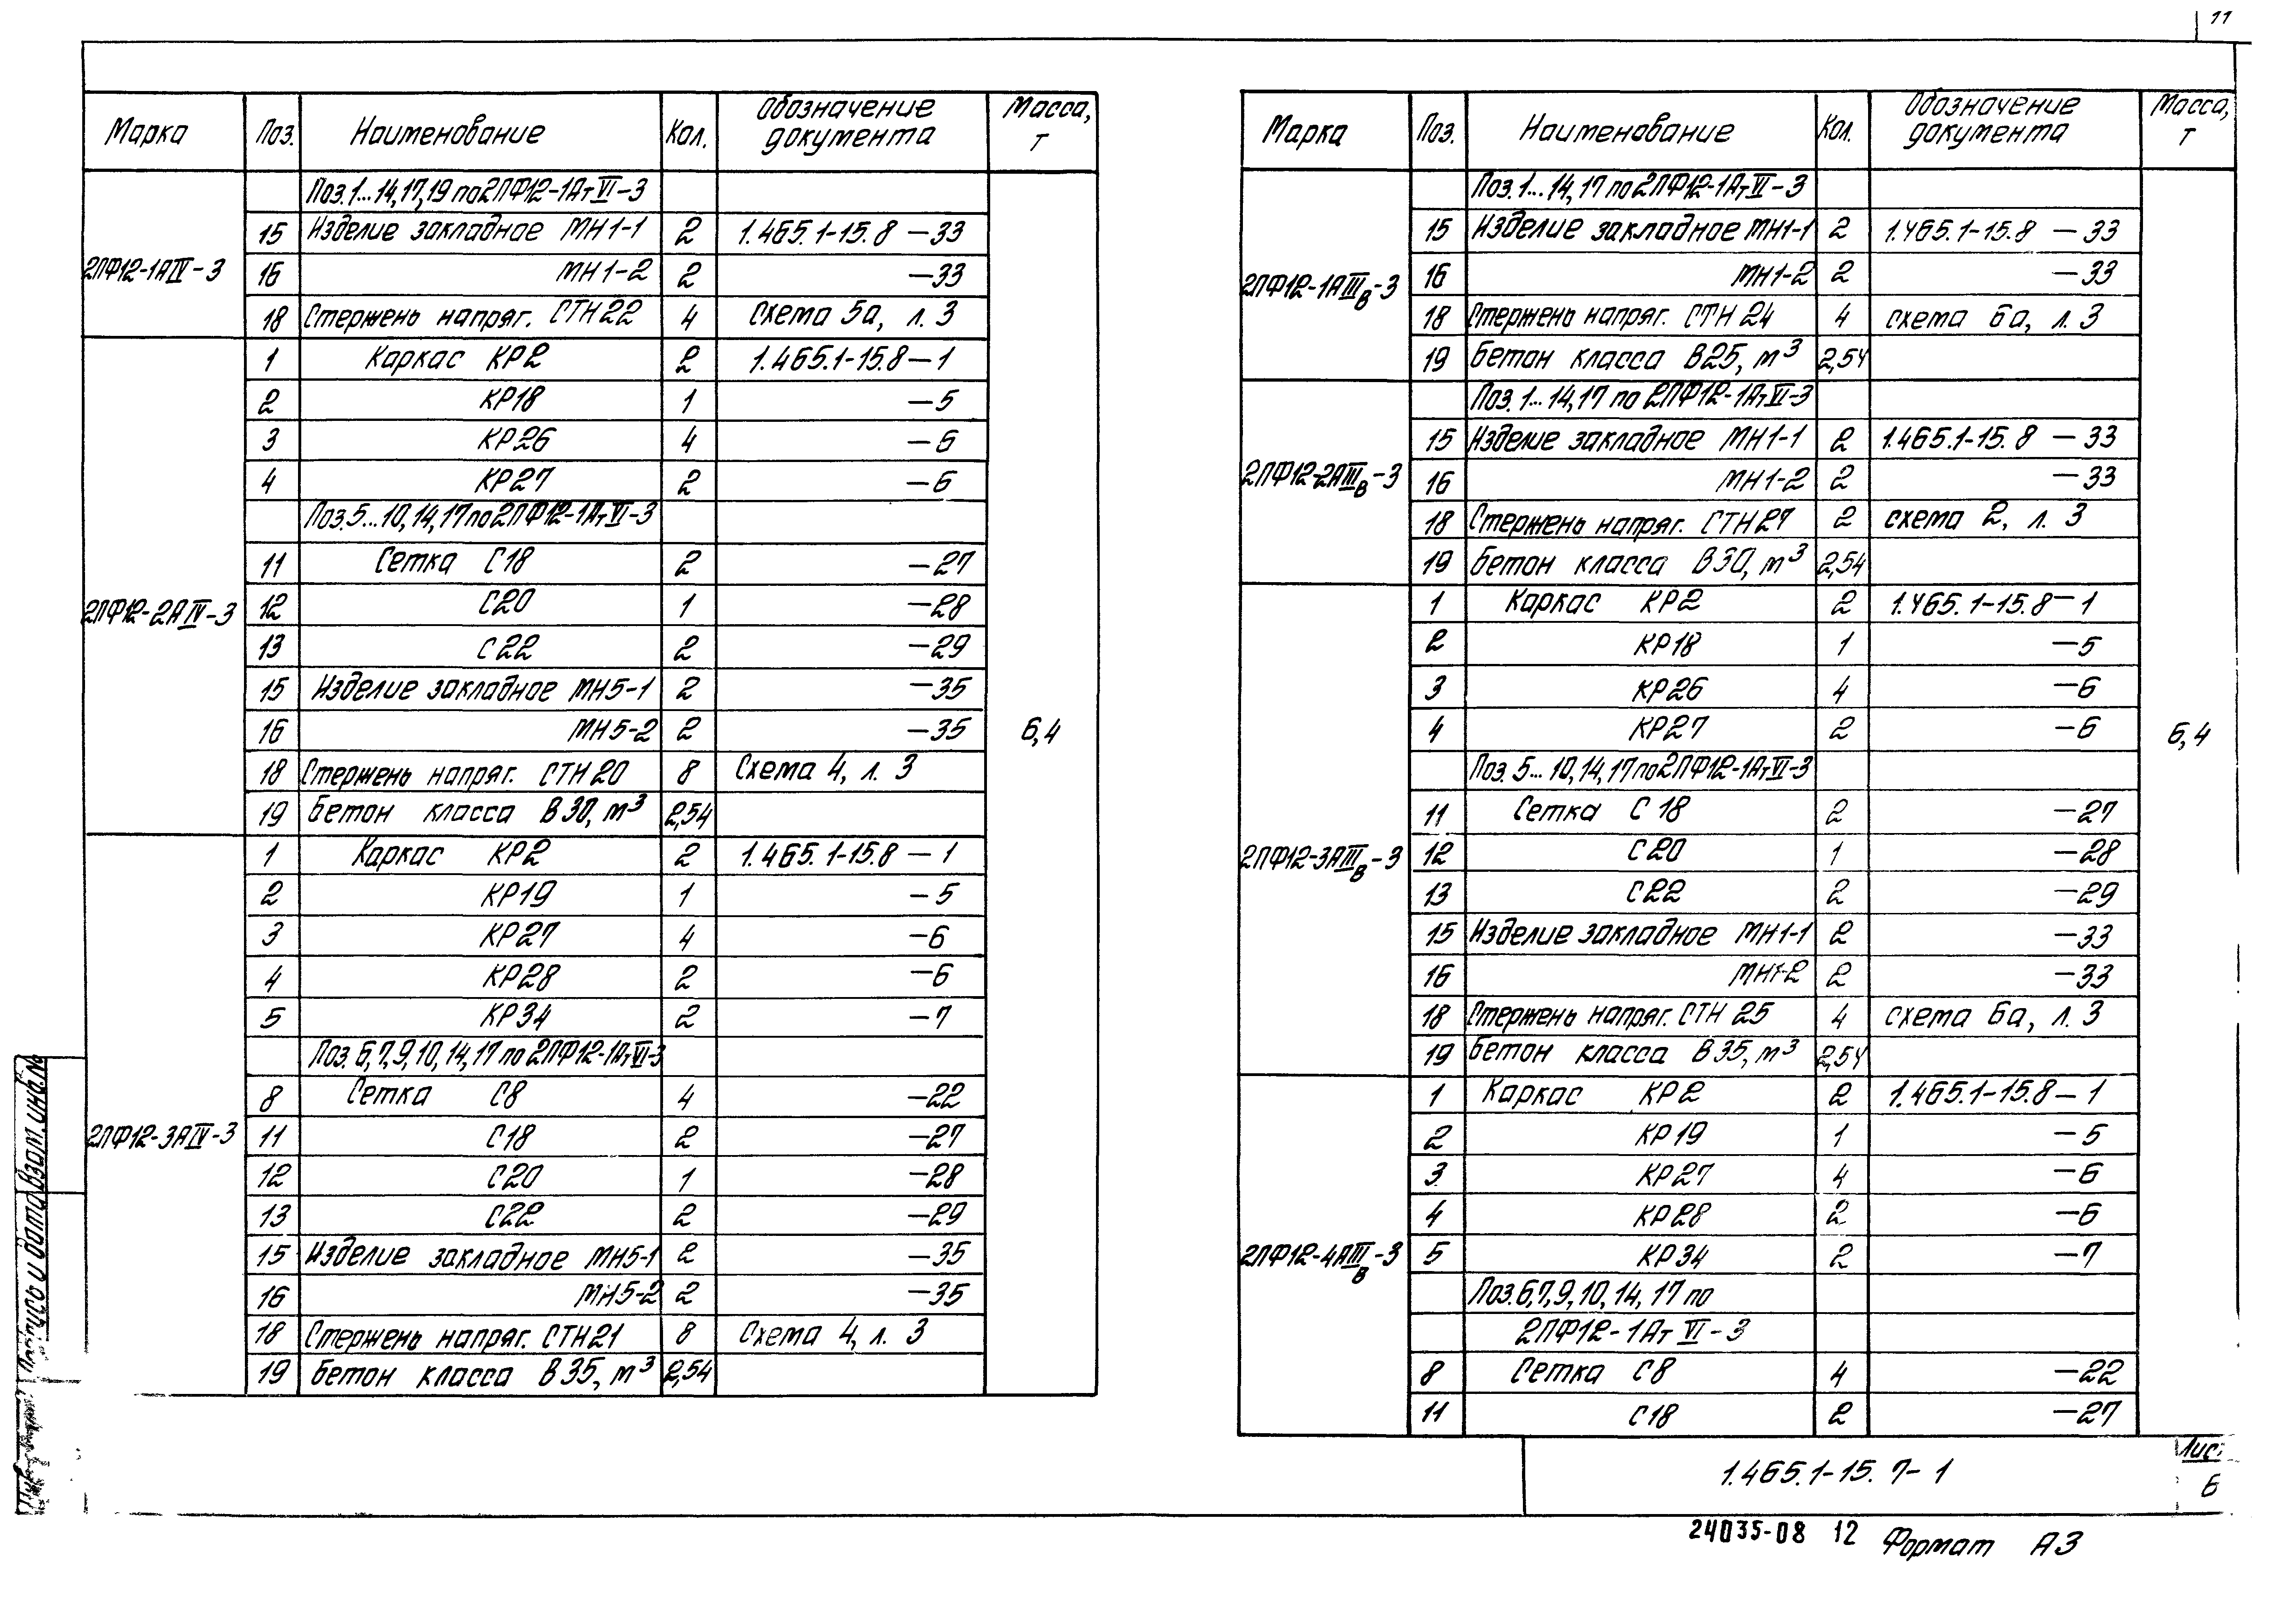 11
Марка Поз. Наименование Кол. Обозначение документа Масса, т
Поз. 1...14, 17, 19 по 2ПФ12-1АтVI-3
2ПФ12-1АIV-3
15 Изделие закладное МН1-1 2 1.465.1-15.8 -33
16 МН1-2 2 -33
18 Стержень напряг. СТН22 4 Схема 5а, л. 3
2ПФ12-2АIV-3
1 Каркас КР2 2 1.465.1-15.8-1
2 КР18 1 -5
3 КР26 4 -6
4 КР27 2 -6
Поз. 5...10, 14, 17 по 2ПФ12-1АтVI-3
11 Сетка С18 2 -27
12 С20 1 -28
13 С22 2 -29
15 Изделие закладное МН5-1 2 -35
16 МН5-2 2 -35
18 Стержень напряг. СТН20 8 Схема 4, л. 3
19 Бетон класса В30, м³ 2,54
6,4
2ПФ12-3АIV-3
1 Каркас КР2 2 1.465.1-15.8-1
2 КР19 1 -5
3 КР27 4 -6
4 КР28 2 -6
5 КР34 2 -7
Поз. 6, 7, 9, 10, 14, 17 по 2ПФ12-1АтVI-3
8 Сетка С8 4 -22
11 С18 2 -27
12 С20 1 -28
13 С22 2 -29
15 Изделие закладное МН5-1 2 -35
16 МН5-2 2 -35
18 Стержень напряг. СТН21 8 Схема 4, л. 3
19 Бетон класса В35, м³ 2,54
Марка Поз. Наименование Кол. Обозначение документа Масса, т
Поз. 1...14, 17 по 2ПФ12-1АтVI-3
2ПФ12-1АIIIв-3
15 Изделие закладное МН1-1 2 1.465.1-15.8 -33
16 МН1-2 2 -33
18 Стержень напряг. СТН24 4 схема 6а, л. 3
19 Бетон класса В25, м³ 2,54
Поз. 1...14, 17 по 2ПФ12-1АтVI-3
2ПФ12-2АIIIв-3
15 Изделие закладное МН1-1 2 1.465.1-15.8 -33
16 МН1-2 2 -33
18 Стержень напряг. СТН27 2 схема 2, л. 3
19 Бетон класса В30, м³ 2,54
2ПФ12-3АIIIв-3
1 Каркас КР2 2 1.465.1-15.8-1
2 КР18 1 -5
3 КР26 4 -6
4 КР27 2 -6
Поз. 5...10, 14, 17 по 2ПФ12-1АтVI-3
11 Сетка С18 2 -27
12 С20 1 -28
13 С22 2 -29
15 Изделие закладное МН1-1 2 -33
16 МН1-2 2 -33
18 Стержень напряг. СТН25 4 схема 6а, л. 3
19 Бетон класса В35, м³ 2,54
6,4
2ПФ12-4АIIIв-3
1 Каркас КР2 2 1.465.1-15.8-1
2 КР19 1 -5
3 КР27 4 -6
4 КР28 2 -6
5 КР34 2 -7
Поз. 6, 7, 9, 10, 14, 17 по
2ПФ12-1АтVI-3
8 Сетка С8 4 -22
11 С18 2 -27
Взам. инв. №
Подпись и дата
1.465.1-15.7-1
Лис
6
24035-08 12 Формат А3